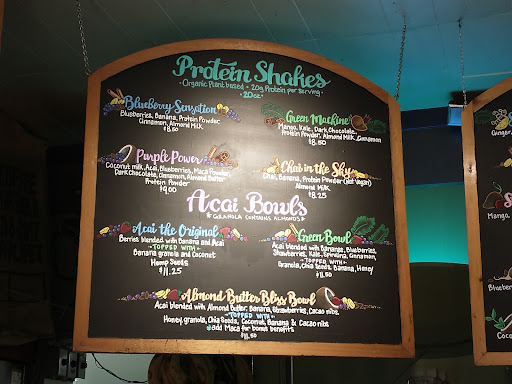 Protein Shakes
• Organic Plant based • 20g Protein per serving •
• 20oz •
Blueberry Sensation
Blueberries, Banana, Protein Powder
Cinnamon, Almond Milk
$8.50
Green Machine
Mango, Kale, Dark Chocolate,
Protein Powder, Almond Milk, Cinnamon
$8.50
Purple Power
Coconut milk, Acai, Blueberries, Maca Powder,
Dark Chocolate, Cinnamon, Almond Butter
Protein Powder
$9.00
Chai in the Sky
Chai, Banana, Protein Powder (not Vegan)
Almond Milk
$8.25
Acai Bowls
* GRANOLA CONTAINS ALMONDS *
Acai the Original
Berries blended with Banana and Acai
- TOPPED WITH -
Banana granola and Coconut
Hemp Seeds
$11.25
Green Bowl
Acai blended with Banana, Blueberries,
Strawberries, Kale, Spirulina, Cinnamon,
- TOPPED WITH -
Granola, Chia Seeds, Banana, Honey
$11.50
Almond Butter Bliss Bowl
Acai blended with Almond Butter, Banana, Strawberries, Cacao nibs
- TOPPED WITH -
Honey, granola, Chia Seeds, Coconut, Banana & Cacao nibs
add Maca for bonus benefits
$11.50